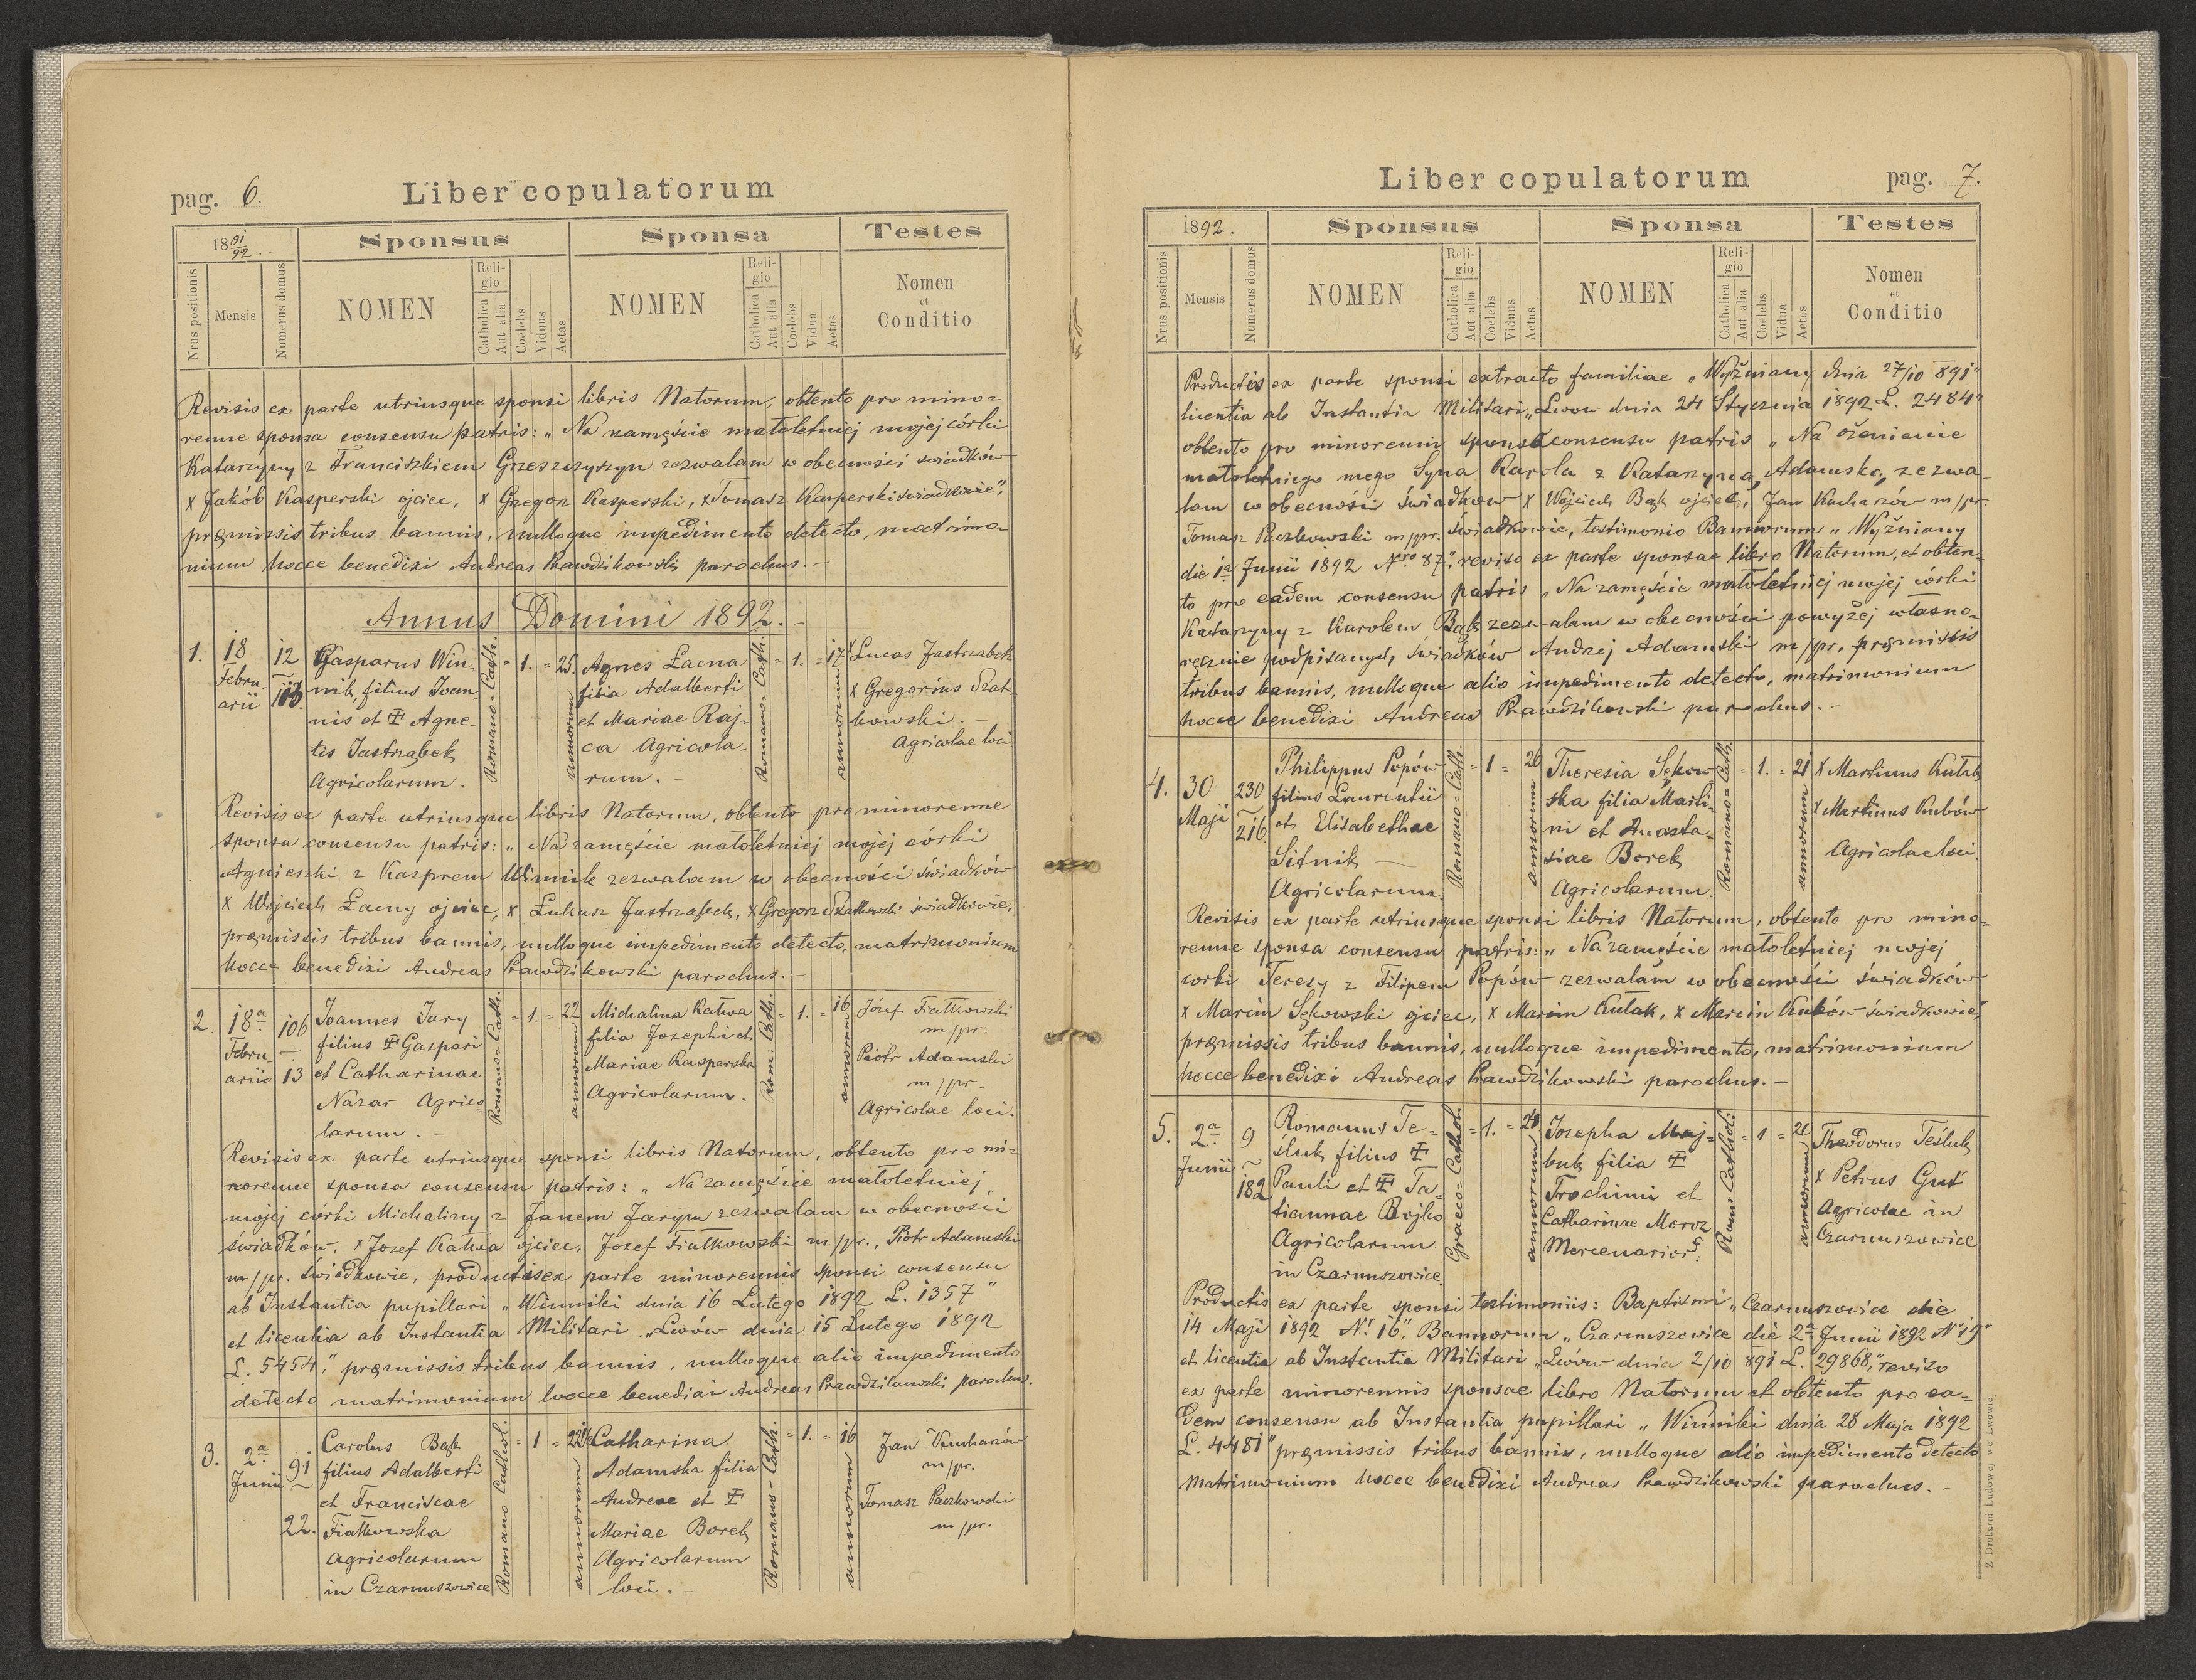 pag. 6.
Liber copulatorum
18 91/92.
Sponsus
Sponsa
Testes
Nrus positionis
Mensis
Numerus domus
NOMEN
Religio
Catholica
Aut alia
Coelebs
Viduus
Aetas
NOMEN
Religio
Catholica
Aut alia
Coelebs
Vidua
Aetas
Nomen
et
Conditio
Revisis ex parte utriusque sponsi libris Natorum, obtento pro mino=
renne sponsa consensu patris: „Na zamęście małoletniej mojej córki
Katarzyny z Franciszkiem Grzeszczyszyn zezwalam w obecności świadków
x Jakób Kasperski ojciec, x Gregor Kasperski, x Tomasz Kasperski świadkowie",
præmissis tribus bannis, nulloque impedimento detecto, matrimo=
nium hocce benedixi Andreas Prawdzikowski parochus. –
Annus Domini 1892. –
1. 18 Februarii
12
Gasparus Win=
nik, filius Joan=
nis et Agne=
tis Jastrząbek
Agricolarum.
Romano=Cath.
= 1. = 25
annorum
Agnes Łacna
filia Adalberti
et Mariae Raj=
ca Agricola=
rum. –
Romano=Cath.
= 1. = 17
annorum
x Lucas Jastrzabek
x Gregorius Szat=
kowski. –
Agricolae loci.
Revisis ex parte utriusque libris Natorum, obtento pro minorenne
sponsa consensu patris: „Na zamęście małoletniej mojej córki
Agnieszki z Kasprem Winnik zezwalam w obecności świadków
x Wojciech Łacny ojciec, x Łukasz Jastrząbek, x Gregorz Szatkowski świadkowie,
præmissis tribus bannis, nulloque impedimento detecto, matrimonium
hocce benedixi Andreas Prawdzikowski parochus. –
2. 18a Februarii
106
13
Joannes Jary
filius Gaspari
et Catharinae
Nazar Agrico=
larum. –
Romano=Cath.
= 1. = 22
annorum
Michalina Kałwa
filia Josephi et
Mariae Kasperska
Agricolarum.
Rom: Cath.
= 1. = 16
annorum
Józef Fiałkowski
m/pr.
Piotr Adamski
m/pr.
Agricolae loci.
Revisis ex parte utriusque sponsi libris Natorum, obtento pro mi=
norenne sponsa consensu patris: „Na zamęście małoletniej
mojej córki Michaliny z Janem Jarym zezwalam w obecności
świadków. x Jozef Kałwa ojciec, Jozef Fiałkowski m/pr., Piotr Adamski
m/pr. świadkowie, productis ex parte minorennis sponsi consensu
ab Instantia pupillari „Winniki dnia 16 Lutego 1892 L. 1357"
et licentia ab Instantia Militari „Lwów dnia 15 Lutego 1892
L. 5454," præmissis tribus bannis, nulloque alio impedimento
detecto matrimonium hocce benedixi Andreas Prawdzikowski parochus.
3. 2a Junii
91
22.
Carolus Bąk
filius Adalberti
et Franciscae
Fiałkowska
agricolarum
in Czarnuszowice
Romano Cathol.
= 1 =
annorum
Catharina
Adamska filia
Andreae et
Mariae Borek
Agricolarum
loci. –
Romano=Cath.
= 1. = 16
annorum
Jan Kucharzów
m/pr.
Tomasz Paczkowski
m/pr.
Liber copulatorum
pag. 7.
1892.
Sponsus
Sponsa
Testes
Nrus positionis
Mensis
Numerus domus
NOMEN
Religio
Catholica
Aut alia
Coelebs
Viduus
Aetas
NOMEN
Religio
Catholica
Aut alia
Coelebs
Vidua
Aetas
Nomen
et
Conditio
Productis ex parte sponsi extracto familiae „Wyżniany dnia 27/10 891"
licentia ab Instantia Militari „Lwow dnia 24 Stycznia 1892 L. 2484"
obtento pro minorenni sponso consensu patris „Na ożenienie
małoletniego mego Syna Karola z Katarzyną Adamską zezwa=
lam w obecności świadkow x Wojciech Bąk ojciec, Jan Kucharzów m/pr.
Tomasz Paczkowski m/pr. świadkowie, testimonio Bannorum „Wyżniany
die 1a Junii 1892 Nro 87", reviso ex parte sponsae libro Natorum, et obten=
to pro eadem consensu patris „Na zamęście małoletniej mojej córki
Katarzyny z Karolem Bąk zezwalam w obecności powyżej własno=
ręcznie podpisanych świadków Andrzej Adamski m/pr, præmissis
tribus bannis, nulloque alio impedimento detecto, matrimonium
hocce benedixi Andreas Prawdzikowski parochus. –
4. 30 Maji
230
216
Philippus Popów
filius Laurentii
et Elisabethae
Sitnik –
Agricolarum.
Romano=Cath.
= 1 = 26
annorum
Theresia Sękow=
ska filia Marti=
ni et Anasta=
siae Borek
Agricolarum.
Romano=Cath.
= 1. = 21
annorum
x Martinus Kułak
x Martinus Kubów
Agricolae loci.
Revisis ex parte utriusque sponsi libris Natorum, obtento pro mino=
renne sponsa consensu patris: „Na zamęście małoletniej mojej
corki Teresy z Filipem Popów zezwalam w obecności świadków
x Marcin Sękowski ojciec, x Marcin Kułak, x Marcin Kubów świadkowie",
præmissis tribus bannis, nulloque impedimento, matrimonium
hocce benedixi Andreas Prawdzikowski parochus. –
5. 2a Junii
9
182
Romanus Te=
śluk filius
Pauli et Ta=
tiannae Bojko
Agricolarum
in Czarnuszowice.
Graeco=Cathol.
= 1. =
annorum
Josepha Maj=
buk filia
Trochimi et
Catharinae Moroz
Mercenarior:
Rom: Cathol:
= 1 =
annorum
Theodorus Teśluk
x Petrus Gut
Agricolae in
Czarnuszowice
Productis ex parte sponsi testimoniis: Baptismi „Czarnuszowice die
14 Maji 1892 Nr 16", Bannorum „Czarnuszowice die 2a Junii 1892 N 19"
et licentia ab Instantia Militari „Lwów dnia 2/10 891 L. 29868", reviso
ex parte minorennis sponsae libro Natorum et obtento pro ea=
dem consensu ab Instantia pupillari „Winniki dnia 28 Maja 1892
L. 4481" præmissis tribus bannis, nulloque alio impedimento detecto
Matrimonium hocce benedixi Andreas Prawdzikowski parochus. –
Z Drukarni Ludowej we Lwowie.